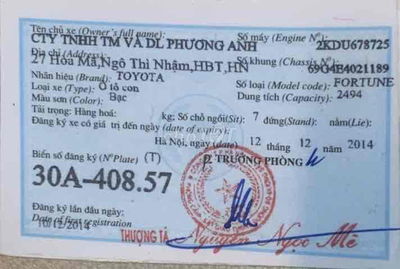 Tên chủ xe (Owner's full name): Số máy (Engine N°):
CTY TNHH TM VÀ DL PHƯƠNG ANH 2KDU678725
Địa chỉ (Address): Số khung (Chassis N°):
27 Hòa Mã,Ngô Thì Nhậm,HBT,HN 69G4E4021189
Nhãn hiệu (Brand): TOYOTA Số loại (Model code): FORTUNE
Loại xe (Type): Ô tô con Dung tích (Capacity): 2494
Màu sơn (Color): Bạc
Tải trọng: Hàng hoá: kg; Số chỗ ngồi(Sit): 7 đứng(Stand): nằm(Lie):
Đăng ký xe có giá trị đến ngày (date of expiry):
Hà Nội, ngày 12 tháng 12 năm 2014
Biển số đăng ký (N°Plate) (T) P. TRƯỞNG PHÒNG
30A-408.57
Đăng ký lần đầu ngày:
Date of first registration
10/12/2014
THƯỢNG TÁ Nguyễn Ngọc Mê